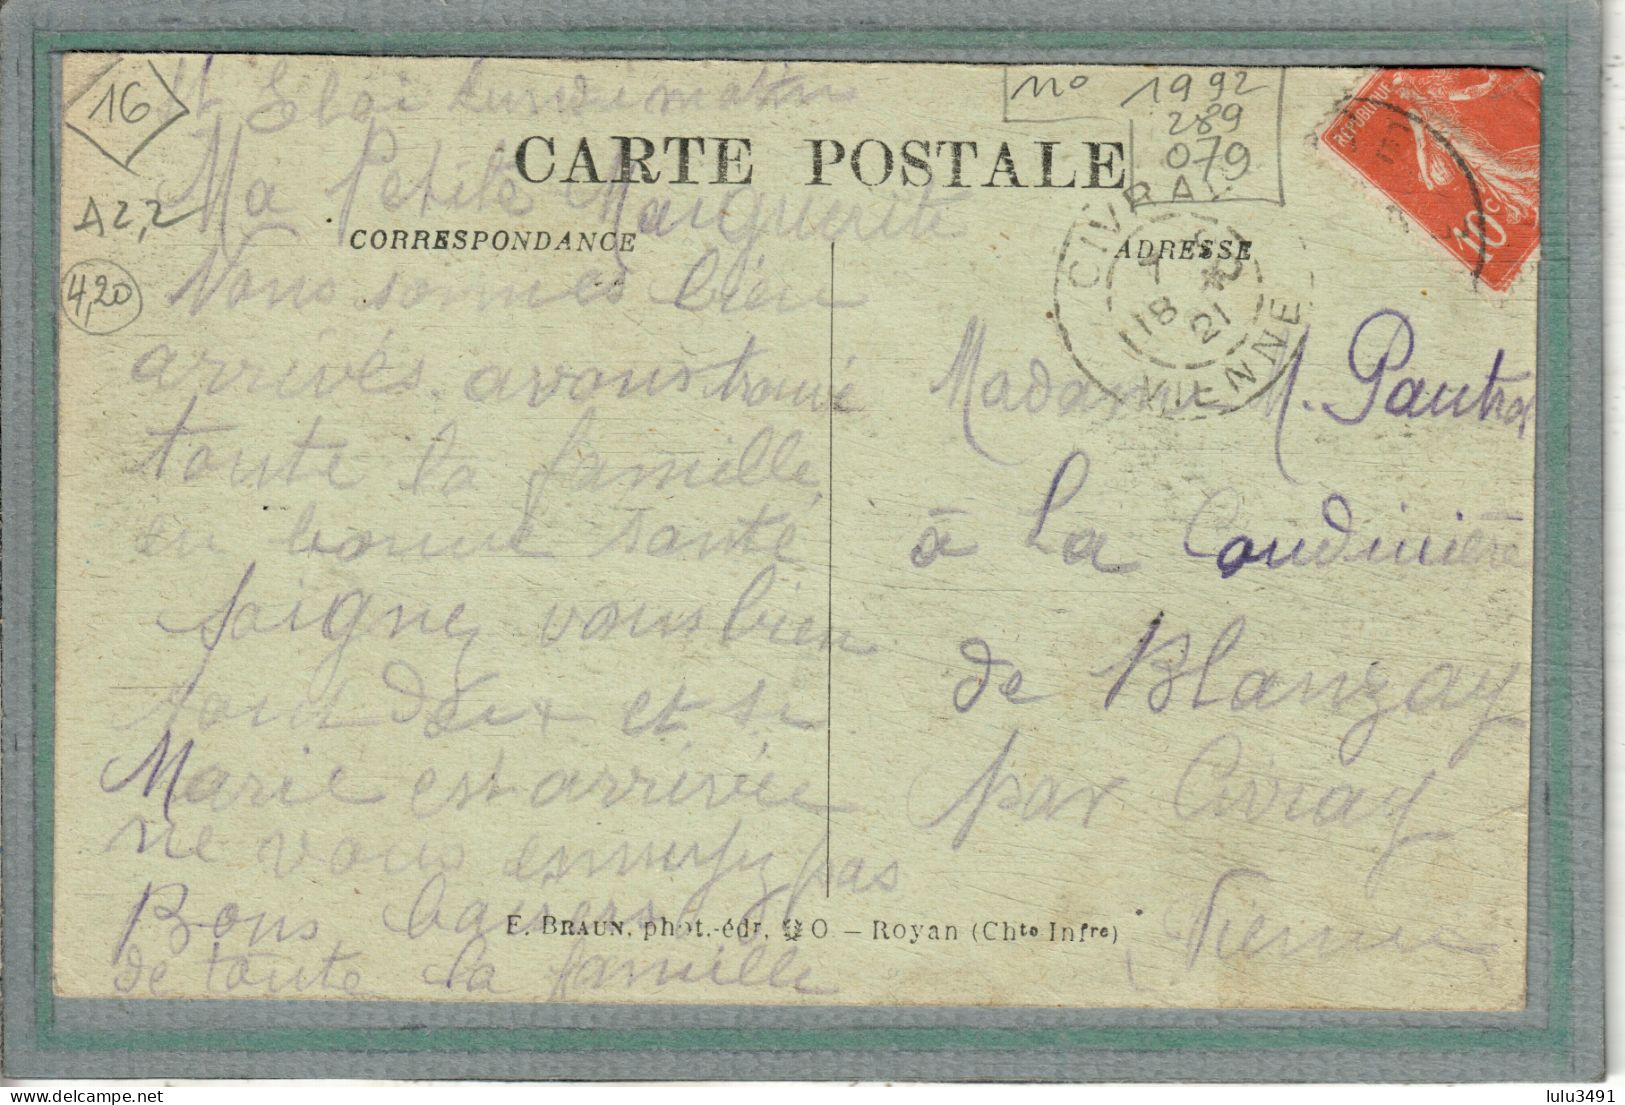 16
A2,2
4,20
no 1992
289
079
St Eloi Lundi matin
CARTE POSTALE
Ma Petite Marguerite
CORRESPONDANCE
ADRESSE
REPUBLIQUE
10c
CIVRAY
18
21
VIENNE
Nous sommes bien
arrivés avons trouvé
toute la famille
en bonne santé
soignez vous bien
tout deux et si
Marie est arrivée
ne vous ennuyez pas
Bons baisers
de toute la famille
Madame M.
à La Coudinière
de Blanzay
par Civray
Vienne
E. BRAUN, phot.-édr, QO — Royan (Chte Infre)
lulu3491